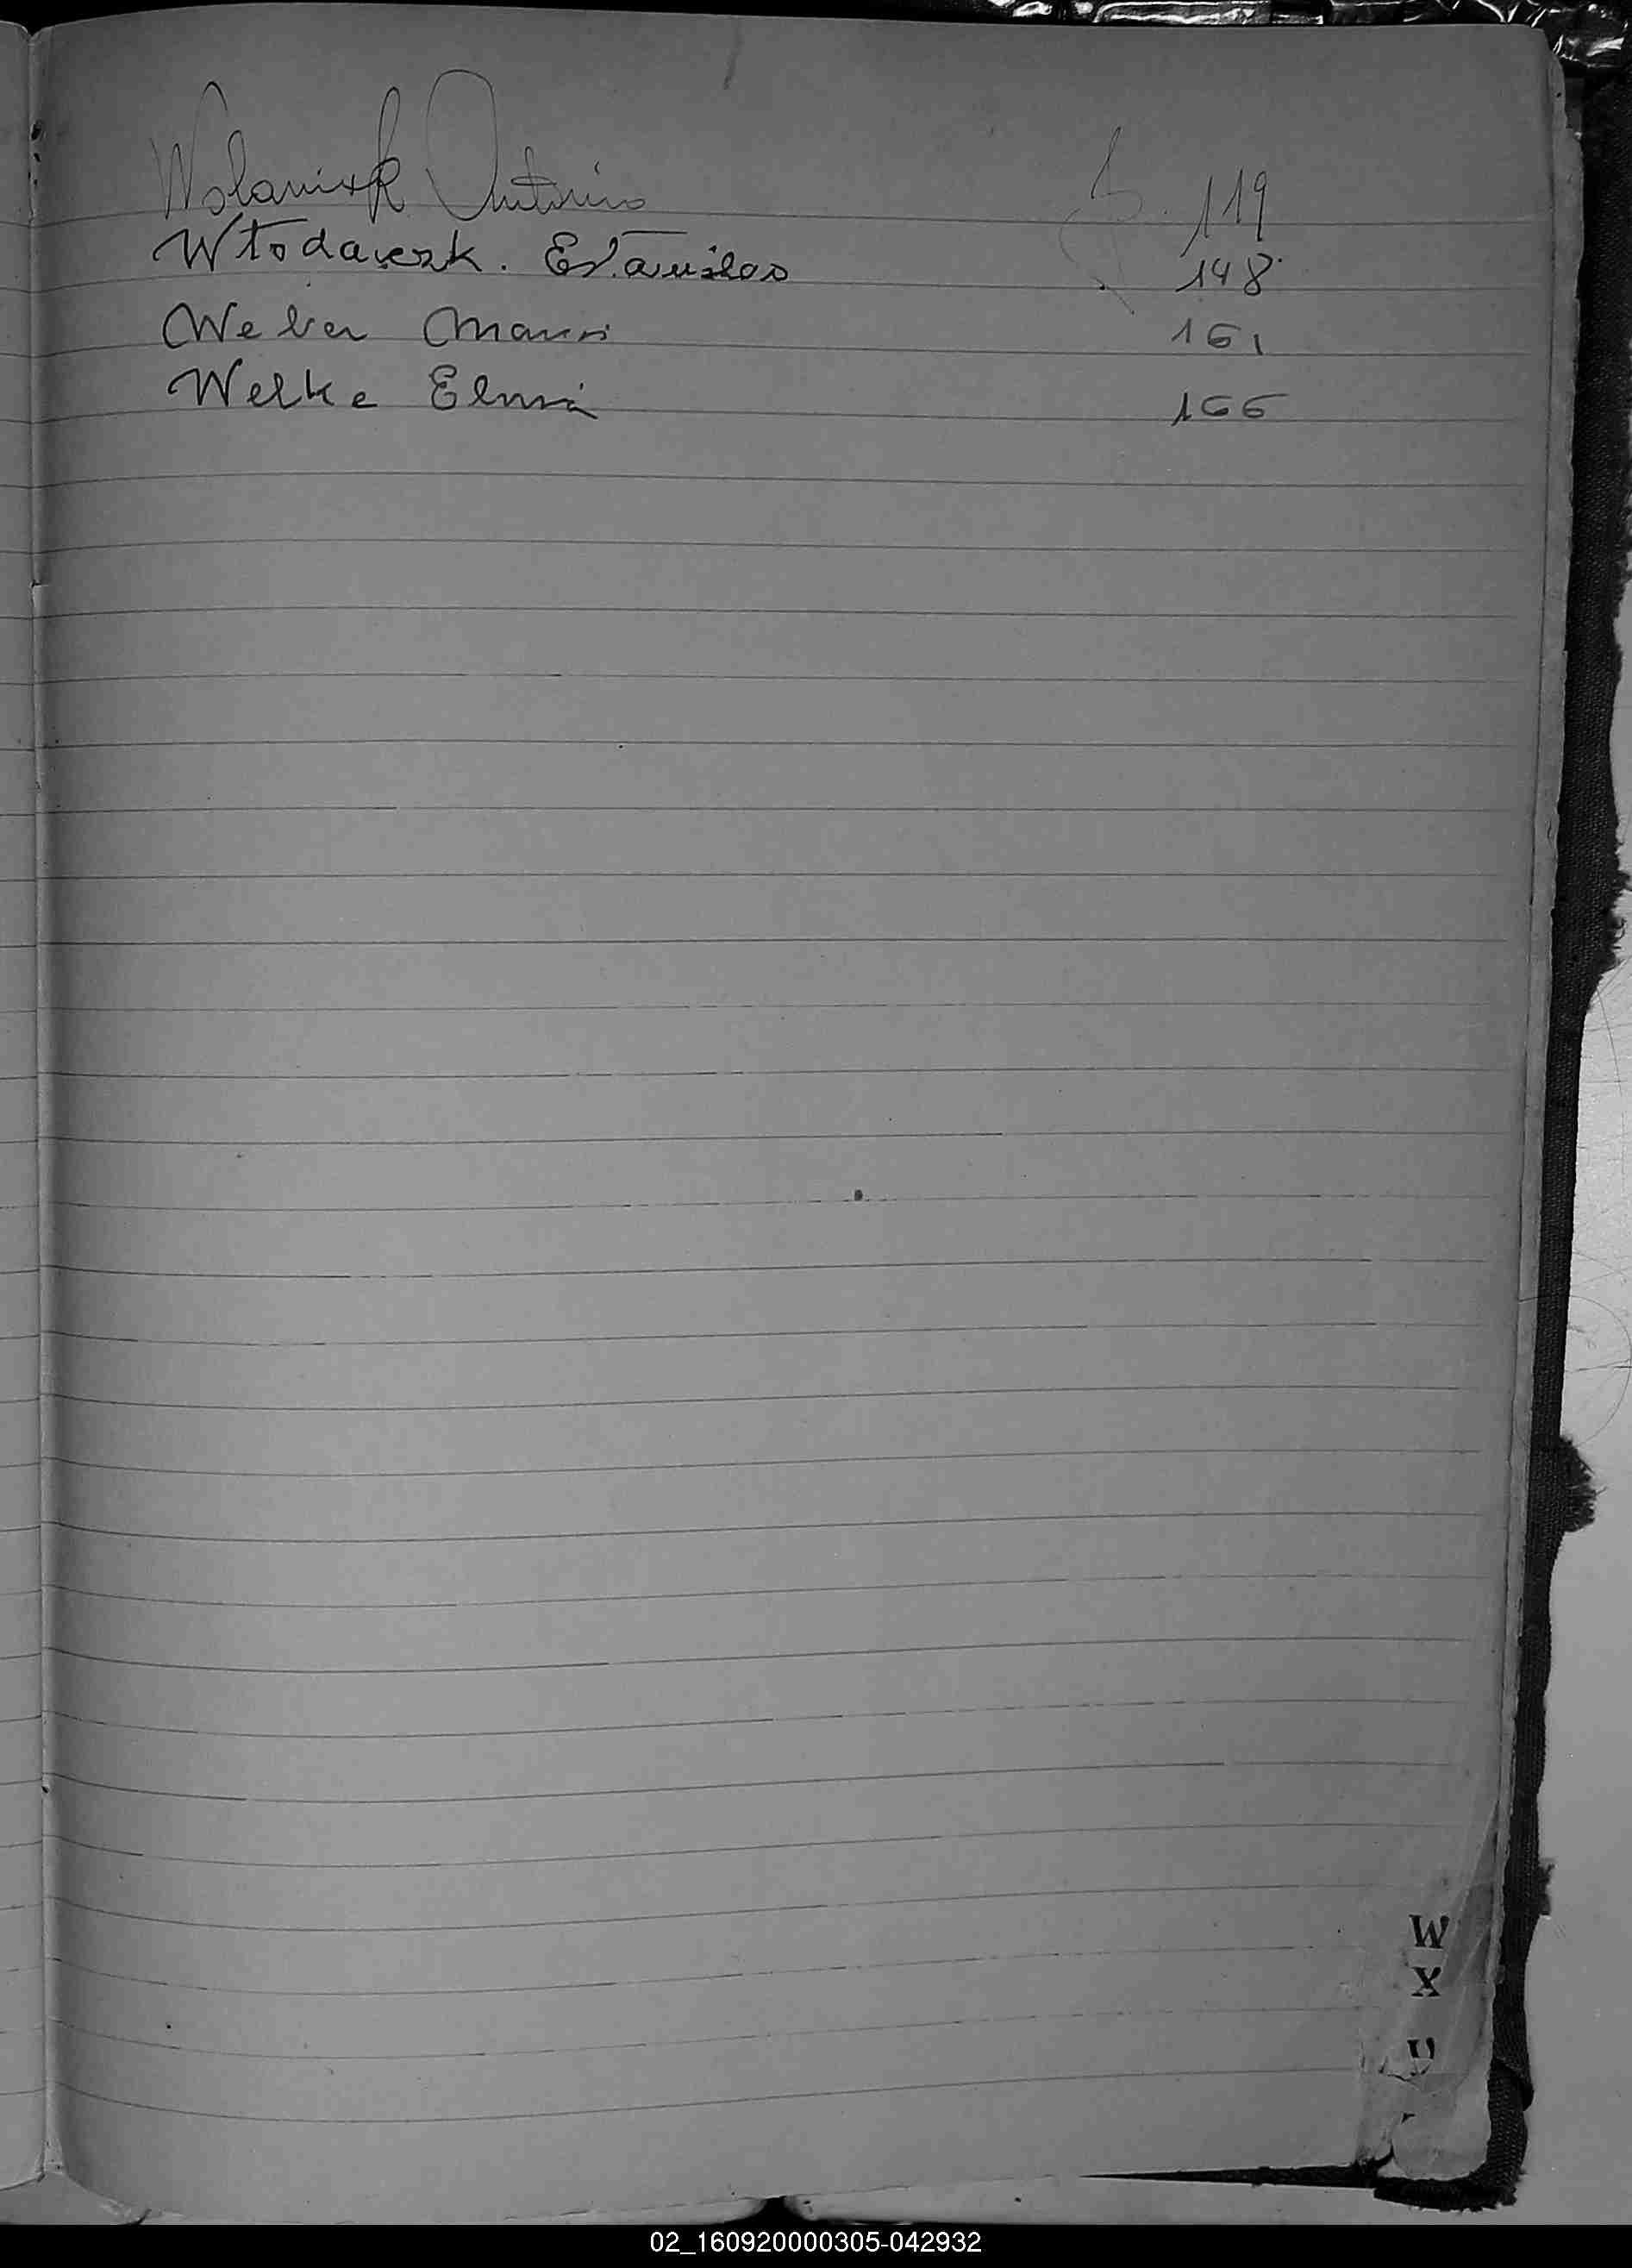 Wolaniuk Antonio 119
Włodarczk. Estanislao 148
Weber Mario 161
Welke Elmi 166
W
X
02_160920000305-042932